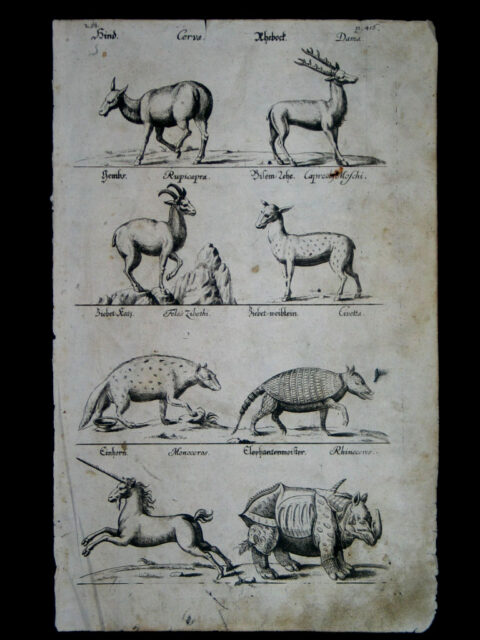 p. 415.
Hind. Cerva. Rhebock. Dama.
Gembs. Rupicapra. Bisem Rehe. Capreoli Moschi.
Zibet-Katz. Feles Zibethi. Zibet-weiblein. Civetta.
Einhorn. Monoceros. Elephantenmeister. Rhinoceros.